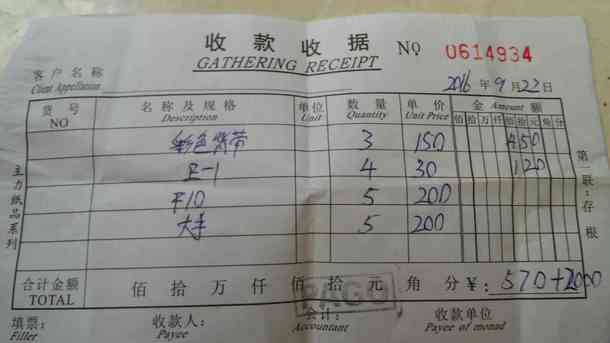 收款收据 NO 0614934
GATHERING RECEIPT
客户名称
Client Appellation
2016年9月22日
货号 名称及规格 单位 数量 单价 金 Amount 额
NO Description Unit Quantity Unit Price 佰拾万仟佰拾元角分
彩色背带 3 150 450
E-1 4 30 120
F10 5 200
大手 5 200
合计金额 佰拾万仟佰拾元角分 ¥: 570+2000
TOTAL
PAGO
填票: 收款人: 会计: 收款单位
Filler Payee Accountant Payee of monad
主力纸品系列
第一联:存根